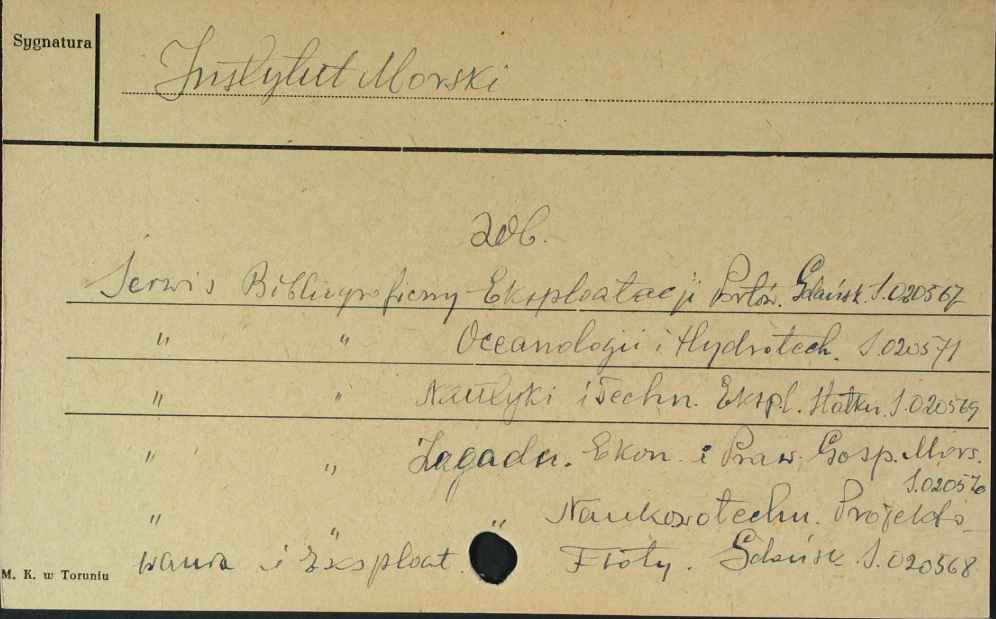 Sygnatura
Instytut Morski
zob.
Serwis Bibliograficzny Eksploatacji Portów. Gdańsk. S.020567
" " Oceanologii i Hydrotech. S.020571
" " Nautyki i Techn. Ekspl. Statku. S.020569
" " Zagadn. Ekon. i Praw. Gosp. Mors.
S.020570
" " " Naukowotechn. Projekto_
wania i Eksploat. Floty. Gdańsk. S.020568
M. K. w Toruniu